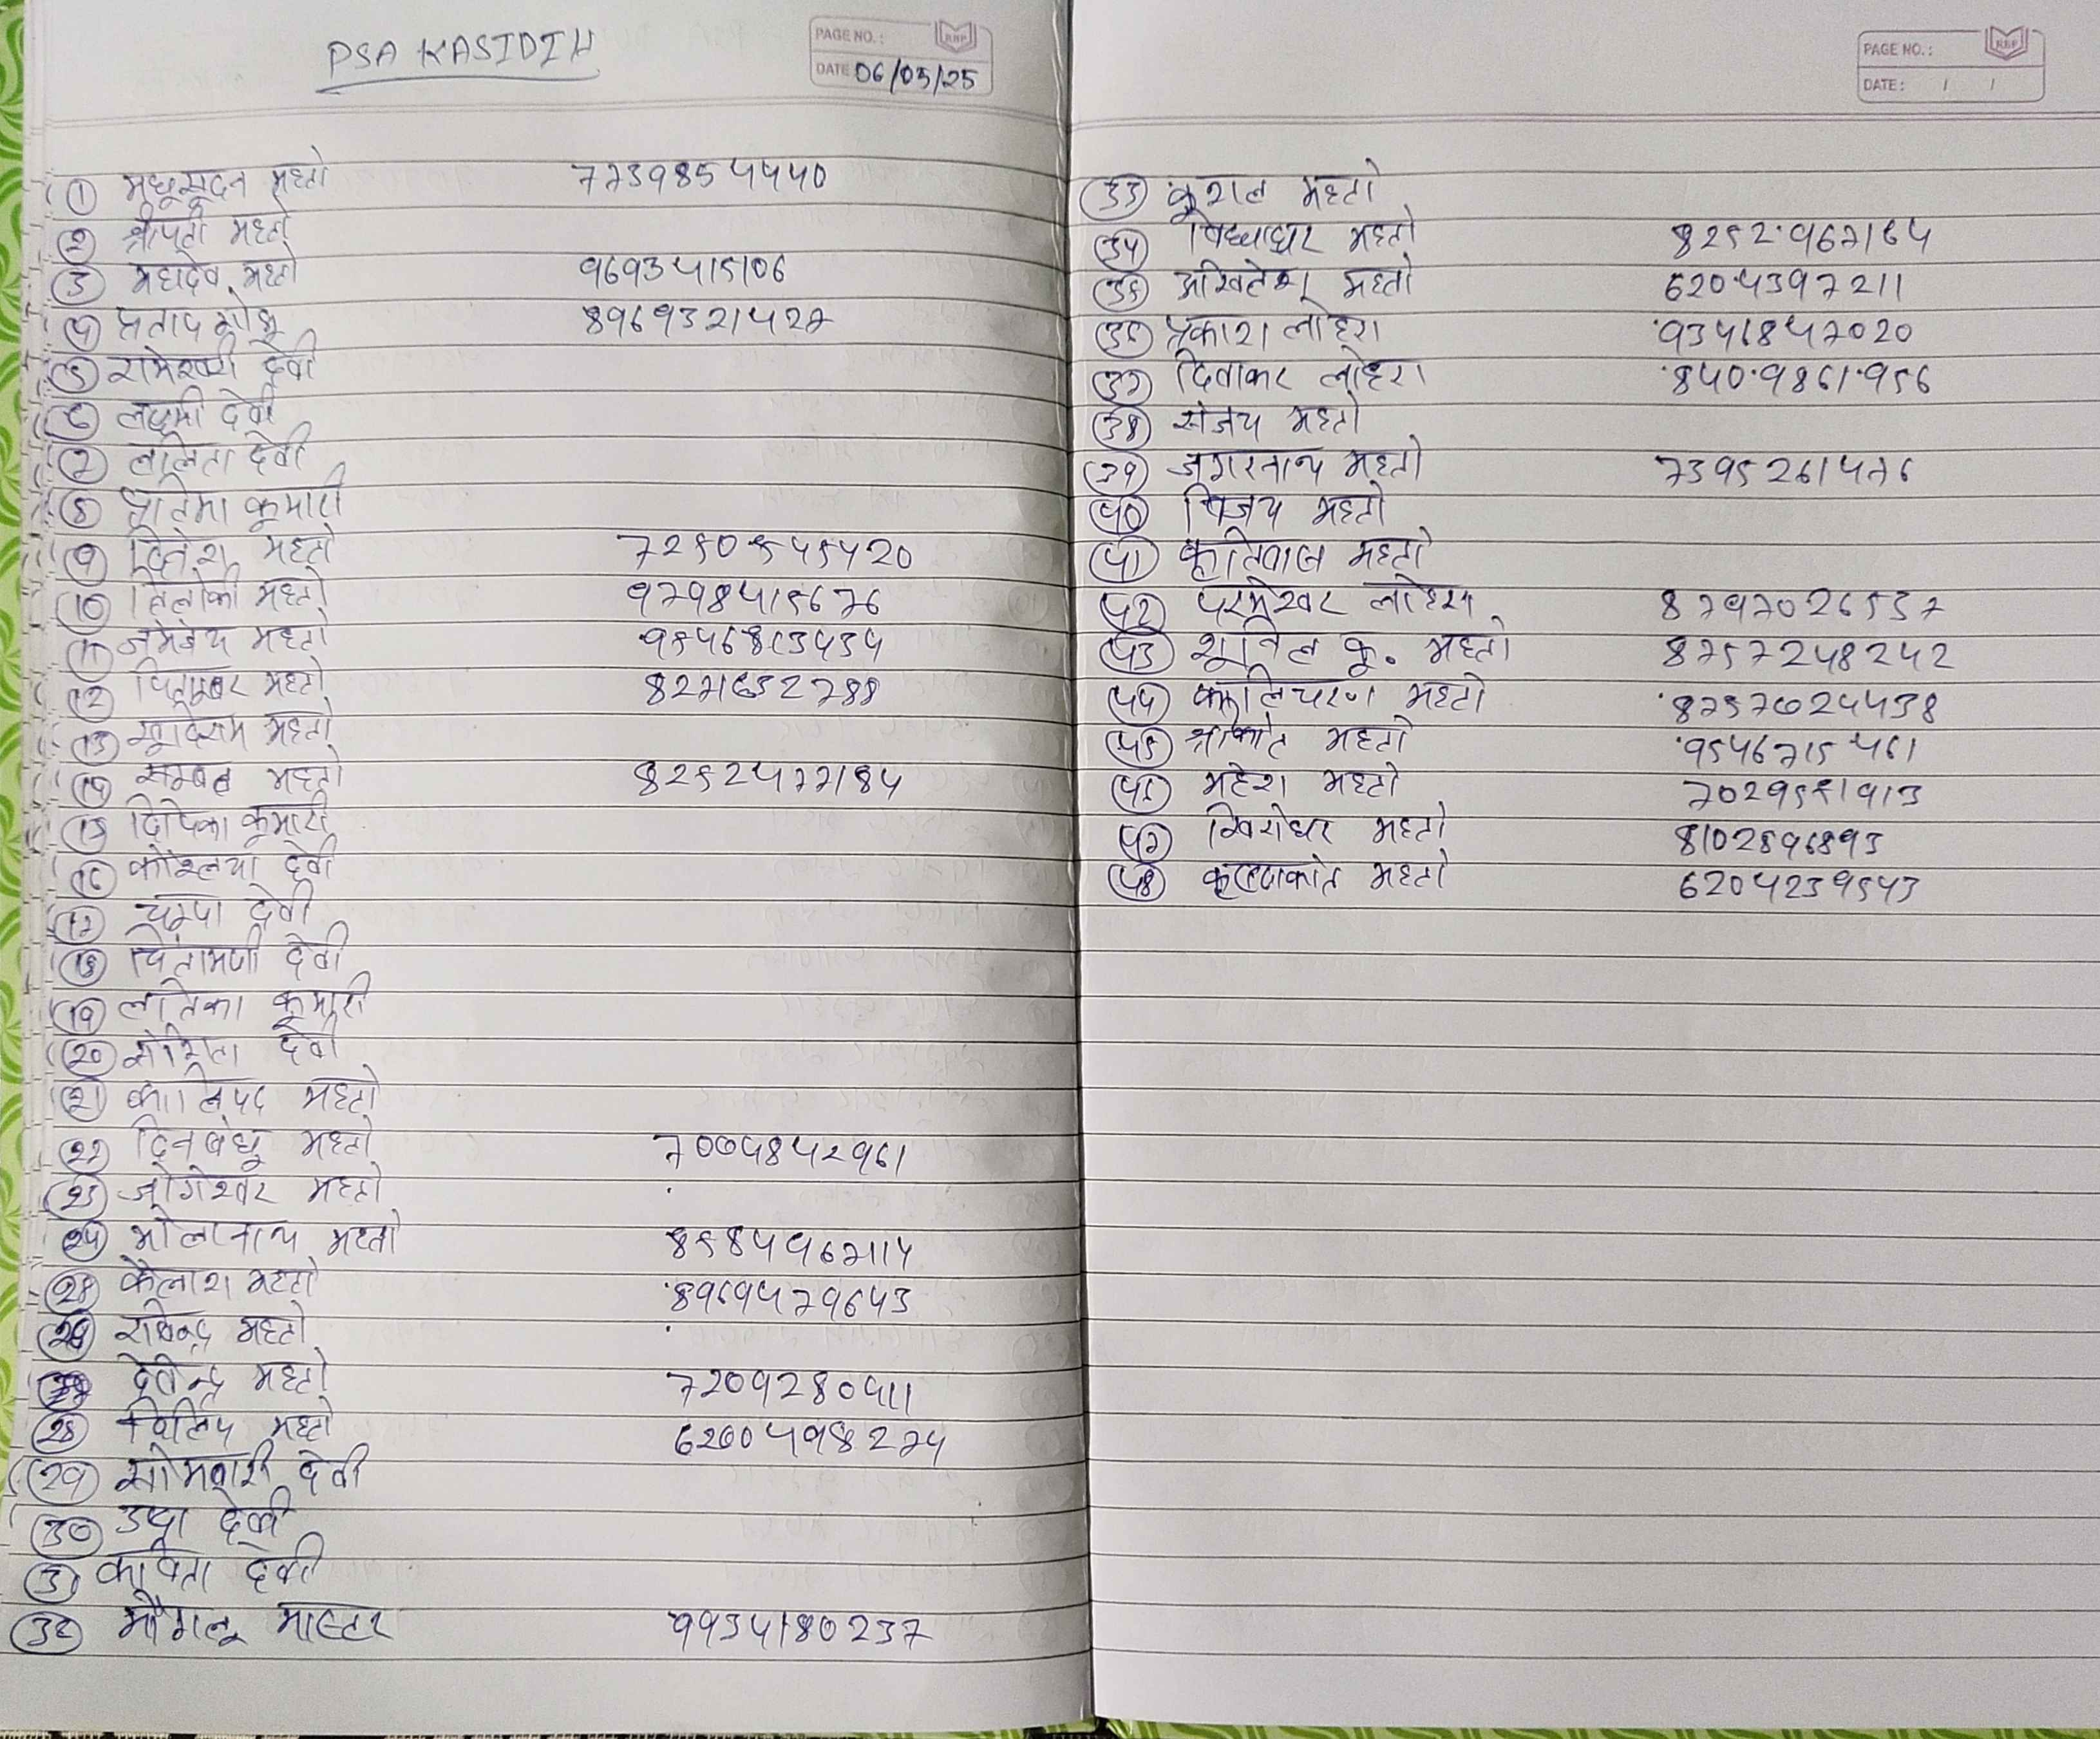 PSA KASIDIH
PAGE NO.: RNP
DATE 06/05/25
① मधुसूदन महतो 7739854440
② श्रीपती महतो
③ महादेव महतो 9693415106
④ प्रताप 8969321427
⑤ रामेश्वरी देवी
⑥ लक्ष्मी देवी
⑦ ललिता देवी
⑧ प्रतिमा कुमारी
⑨ हितेश महतो
⑩ त्रिलोकी महतो 9798415676
⑪ महतो
⑫ पितम्बर महतो
⑬ महतो
⑭ महतो 8252477184
⑮ दिपिका कुमारी
⑯ कौशल्या देवी
⑰ चम्पा देवी
⑱ चिंतामणी देवी
⑲ लतिका कुमारी
⑳ देवी
㉑ कालिपद महतो
㉒ दिनबंधु महतो 7004842961
㉓ जोगेश्वर महतो
㉔ भोलानाथ महतो 8584967114
㉕ कैलाश महतो 8969479643
㉖ रविन्द्र महतो
㉗ देविन्द्र महतो 7209280911
㉘ महतो
㉙ सोमवारी देवी
㉚ देवी
㉛ कविता देवी
㉜ मास्टर 9934180237
PAGE NO.: RNP
DATE: / /
㉝ कुशल महतो
㉞ विध्याधर महतो 8252967164
㉟ महतो 6204397211
㊱ प्रकाश लोहरा 9341847020
㊲ दिवाकर लोहरा 8409861956
㊳ संजय महतो
㊴ जगरनाथ महतो
㊵ विजय महतो
㊶ महतो
㊷ परमेश्वर लोहरा 8797026537
㊸ शुनिल कु. महतो 8757248242
㊹ कालिचरण महतो 8757024438
㊺ श्रीकांत महतो 9546715461
㊻ महेश महतो
㊼ महतो 8102596893
㊽ कृष्णकांत महतो 6204239543